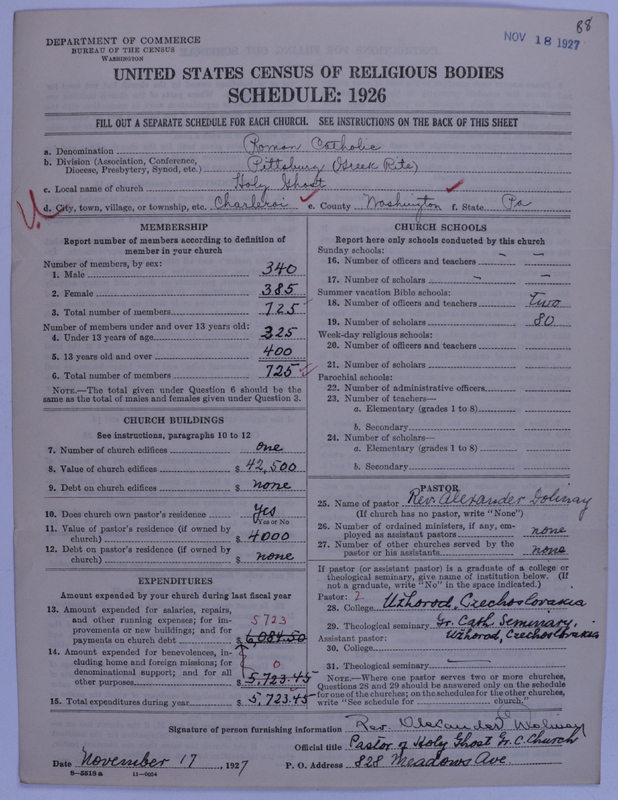 88
NOV 18 1927
DEPARTMENT OF COMMERCE
BUREAU OF THE CENSUS
WASHINGTON
UNITED STATES CENSUS OF RELIGIOUS BODIES
SCHEDULE: 1926
FILL OUT A SEPARATE SCHEDULE FOR EACH CHURCH. SEE INSTRUCTIONS ON THE BACK OF THIS SHEET
a. Denomination Roman Catholic
b. Division (Association, Conference, Diocese, Presbytery, Synod, etc.) Pittsburg (Greek Rite)
c. Local name of church Holy Ghost
d. City, town, village, or township, etc. Charleroi e. County Washington f. State Pa
MEMBERSHIP
Report number of members according to definition of
member in your church
Number of members, by sex:
1. Male 340
2. Female 385
3. Total number of members 725
Number of members under and over 13 years old:
4. Under 13 years of age 325
5. 13 years old and over 400
6. Total number of members 725
NOTE.—The total given under Question 6 should be the
same as the total of males and females given under Question 3.
CHURCH BUILDINGS
See instructions, paragraphs 10 to 12
7. Number of church edifices one
8. Value of church edifices $ 42,500
9. Debt on church edifices $ none
10. Does church own pastor's residence yes
(Yes or No)
11. Value of pastor's residence (if owned by
church) $ 4000
12. Debt on pastor's residence (if owned by
church) $ none
EXPENDITURES
Amount expended by your church during last fiscal year
13. Amount expended for salaries, repairs,
and other running expenses; for im-
provements or new buildings; and for
payments on church debt 5723 $ 6,084.50
14. Amount expended for benevolences, in-
cluding home and foreign missions; for
denominational support; and for all
other purposes 0 $ 5,723.45
15. Total expenditures during year $ 5,723.45
CHURCH SCHOOLS
Report here only schools conducted by this church
Sunday schools:
16. Number of officers and teachers – –
17. Number of scholars – –
Summer vacation Bible schools:
18. Number of officers and teachers two
19. Number of scholars 80
Week-day religious schools:
20. Number of officers and teachers
21. Number of scholars
Parochial schools:
22. Number of administrative officers
23. Number of teachers—
a. Elementary (grades 1 to 8)
b. Secondary
24. Number of scholars—
a. Elementary (grades 1 to 8)
b. Secondary
PASTOR
25. Name of pastor Rev. Alexander Dolinay
(If church has no pastor, write "None")
26. Number of ordained ministers, if any, em-
ployed as assistant pastors none
27. Number of other churches served by the
pastor or his assistants none
If pastor (or assistant pastor) is a graduate of a college or
theological seminary, give name of institution below. (If
not a graduate, write "No" in the space indicated.)
Pastor: 2
28. College Užhorod, Czechoslovakia
29. Theological seminary Gr. Cath. Seminary,
Assistant pastor: Užhorod, Czechoslovakia
30. College
31. Theological seminary —
NOTE.—Where one pastor serves two or more churches,
Questions 28 and 29 should be answered only on the schedule
for one of the churches; on the schedules for the other churches,
write "See schedule for church."
Signature of person furnishing information Rev. Alexander Dolinay
Official title Pastor of Holy Ghost Gr. C. Church
Date November 17, 1927 P. O. Address 828 Meadows Ave.
8—5518 a 11—9054